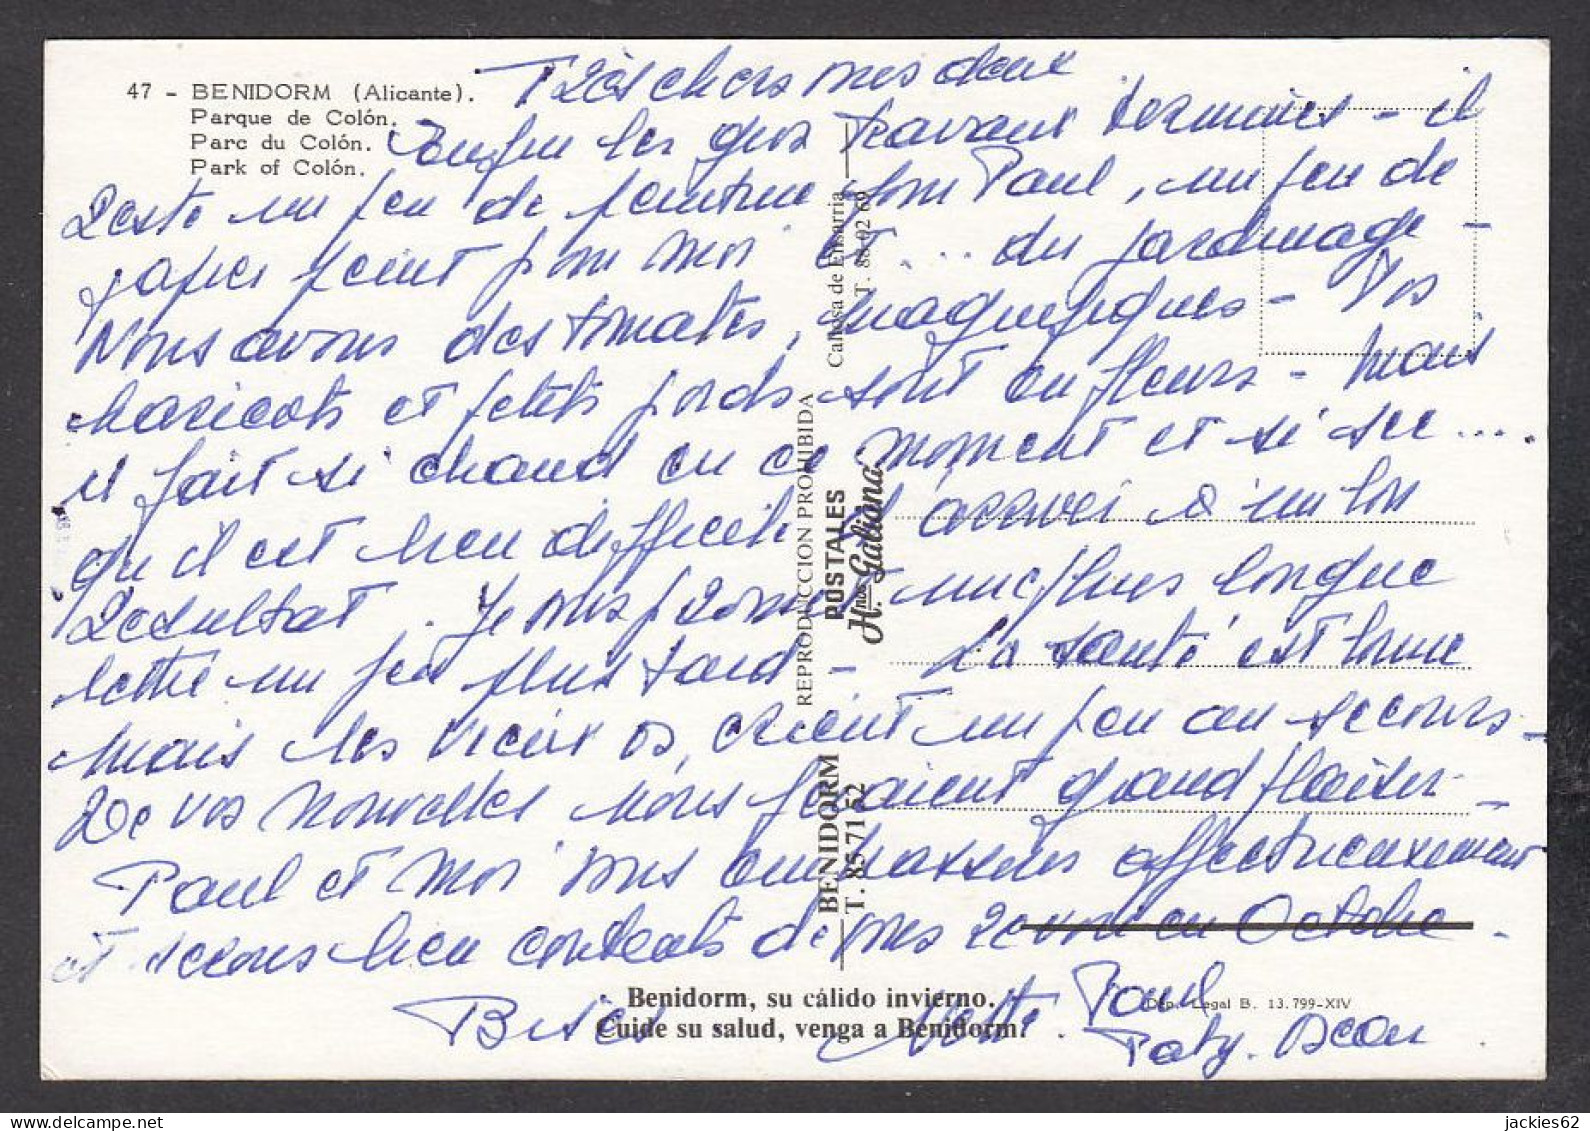 47 - BENIDORM (Alicante).
Parque de Colón.
Parc du Colón.
Park of Colón.
Très chers mes deux
Enfin les gros travaux terminés - il
reste un peu de peinture pour Paul, un peu de
papier peint pour moi et ... du jardinage -
Nous avons des tomates, magnifiques - Nos
haricots et petits pords sont en fleurs - Mais
il fait si chaud en ce moment et si sec ....
qu'il est bien difficile d'arriver à un bon
résultat. Je vous promet une plus longue
lettre un peu plus tard - La santé est bonne
mais les vieux os, crient un peu au secours -
De vos nouvelles nous feraient grand plaisir -
Paul et moi vous embrassons affectueusement
et serons bien contents de vous revoir en Octobre -
Bises
Paul
Paty. Dean
Callosa de Ensarria
T. 88 02 69
REPRODUCCION PROHIBIDA
POSTALES
Hnos. Galiana
BENIDORM
T. 85 71 52
Benidorm, su cálido invierno.
Cuide su salud, venga a Benidorm.
Dep. Legal B. 13.799-XIV
jackies62